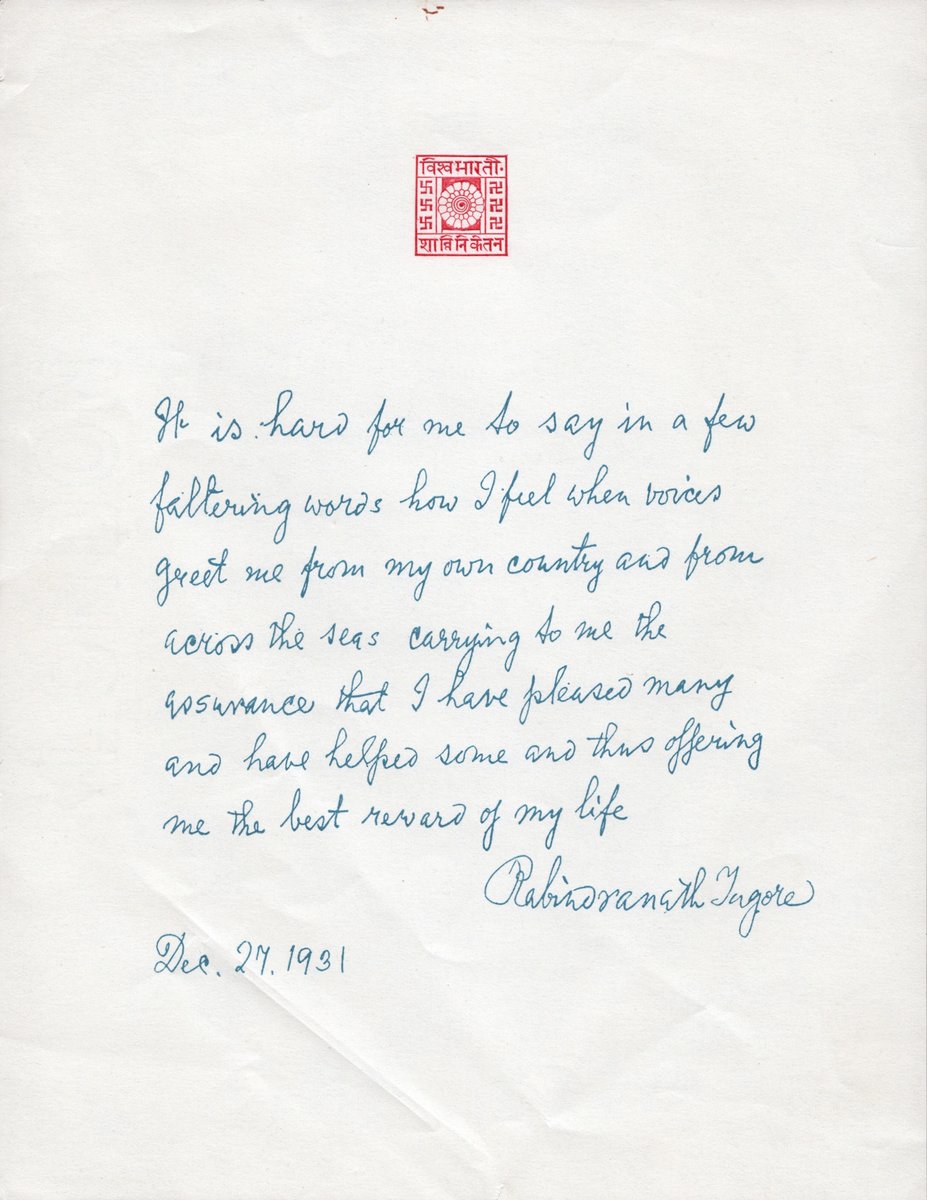 विश्वभारती.
शान्तिनिकेतन
It is hard for me to say in a few
faltering words how I feel when voices
greet me from my own country and from
across the seas carrying to me the
assurance that I have pleased many
and have helped some and thus offering
me the best reward of my life
Rabindranath Tagore
Dec. 27. 1931